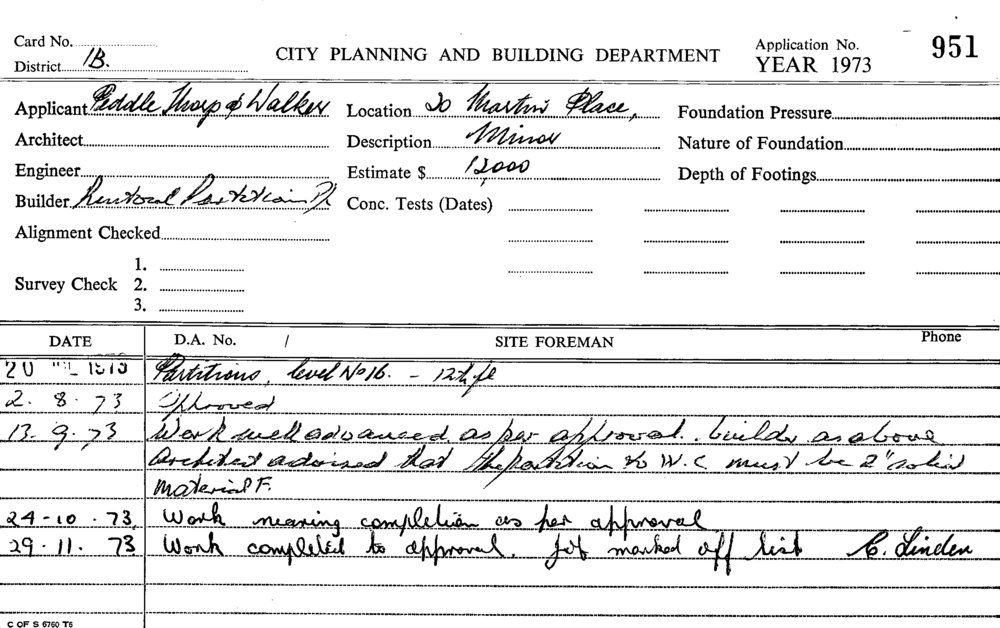 Card No.
District 1B.
CITY PLANNING AND BUILDING DEPARTMENT
Application No. 951
YEAR 1973
Applicant Peddle Thorp & Walker
Location 20 Martin Place,
Foundation Pressure
Architect
Description Minor
Nature of Foundation
Engineer
Estimate $ 12,000
Depth of Footings
Builder
Conc. Tests (Dates)
Alignment Checked
Survey Check
1.
2.
3.
DATE D.A. No. / SITE FOREMAN Phone
20 1973 Partitions, level No 16. - 12th fl
2. 8. 73 Approved
13. 9. 73 Work well advanced as per approval. builder as above
Architect advised that the partition to W.C must be 2" solid
material F.
24-10.73. Work nearing completion as per approval
29.11.73 Work completed to approval. Job marked off list C. Linden
C OF S 6760 T6